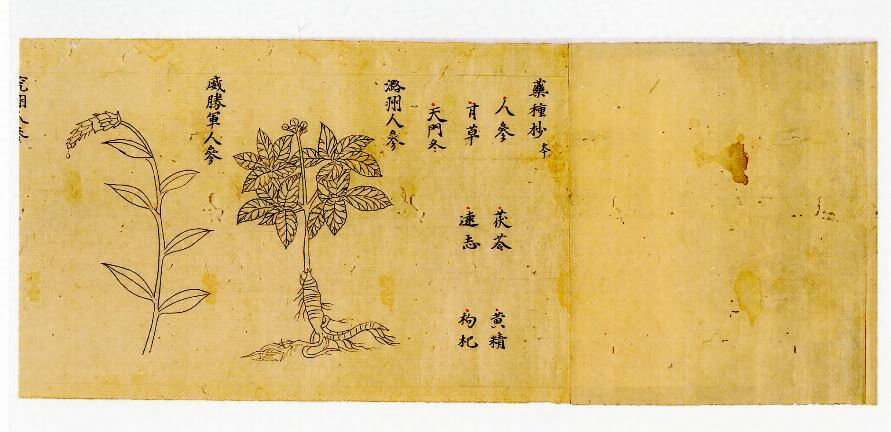 藥種抄 本
人參 茯苓 黄精
甘草 遠志 枸杞
天門冬
潞州人參
威勝軍人參
州人參